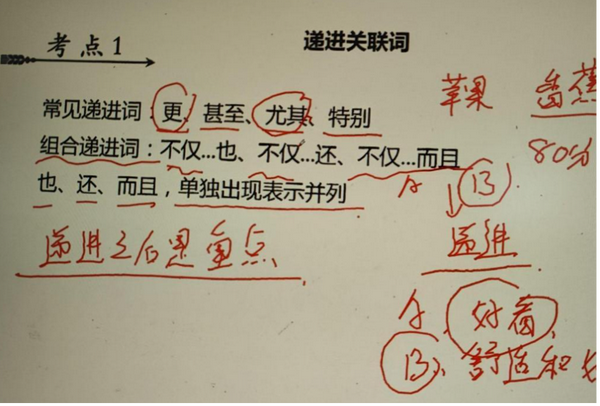 考点1
递进关联词
苹果 香蕉
常见递进词：更、甚至、尤其、特别
组合递进词：不仅…也、不仅…还、不仅…而且
80分
也、还、而且，单独出现表示并列
A B
递进之后是重点
递进
A、好看、
B、舒适和